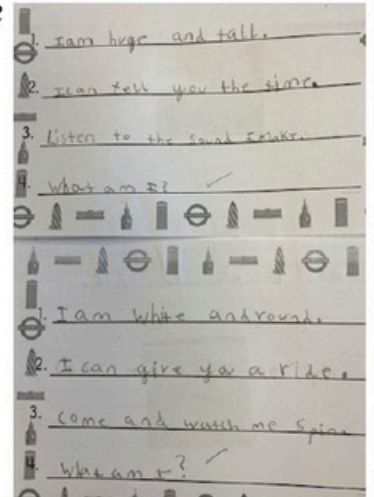 1. I am huge and tall.
2. I can tell you the time.
3. Listen to the sound I make.
4. What am I?
1. I am white and round.
2. I can give you a ride.
3. Come and watch me spin.
4. What am I?